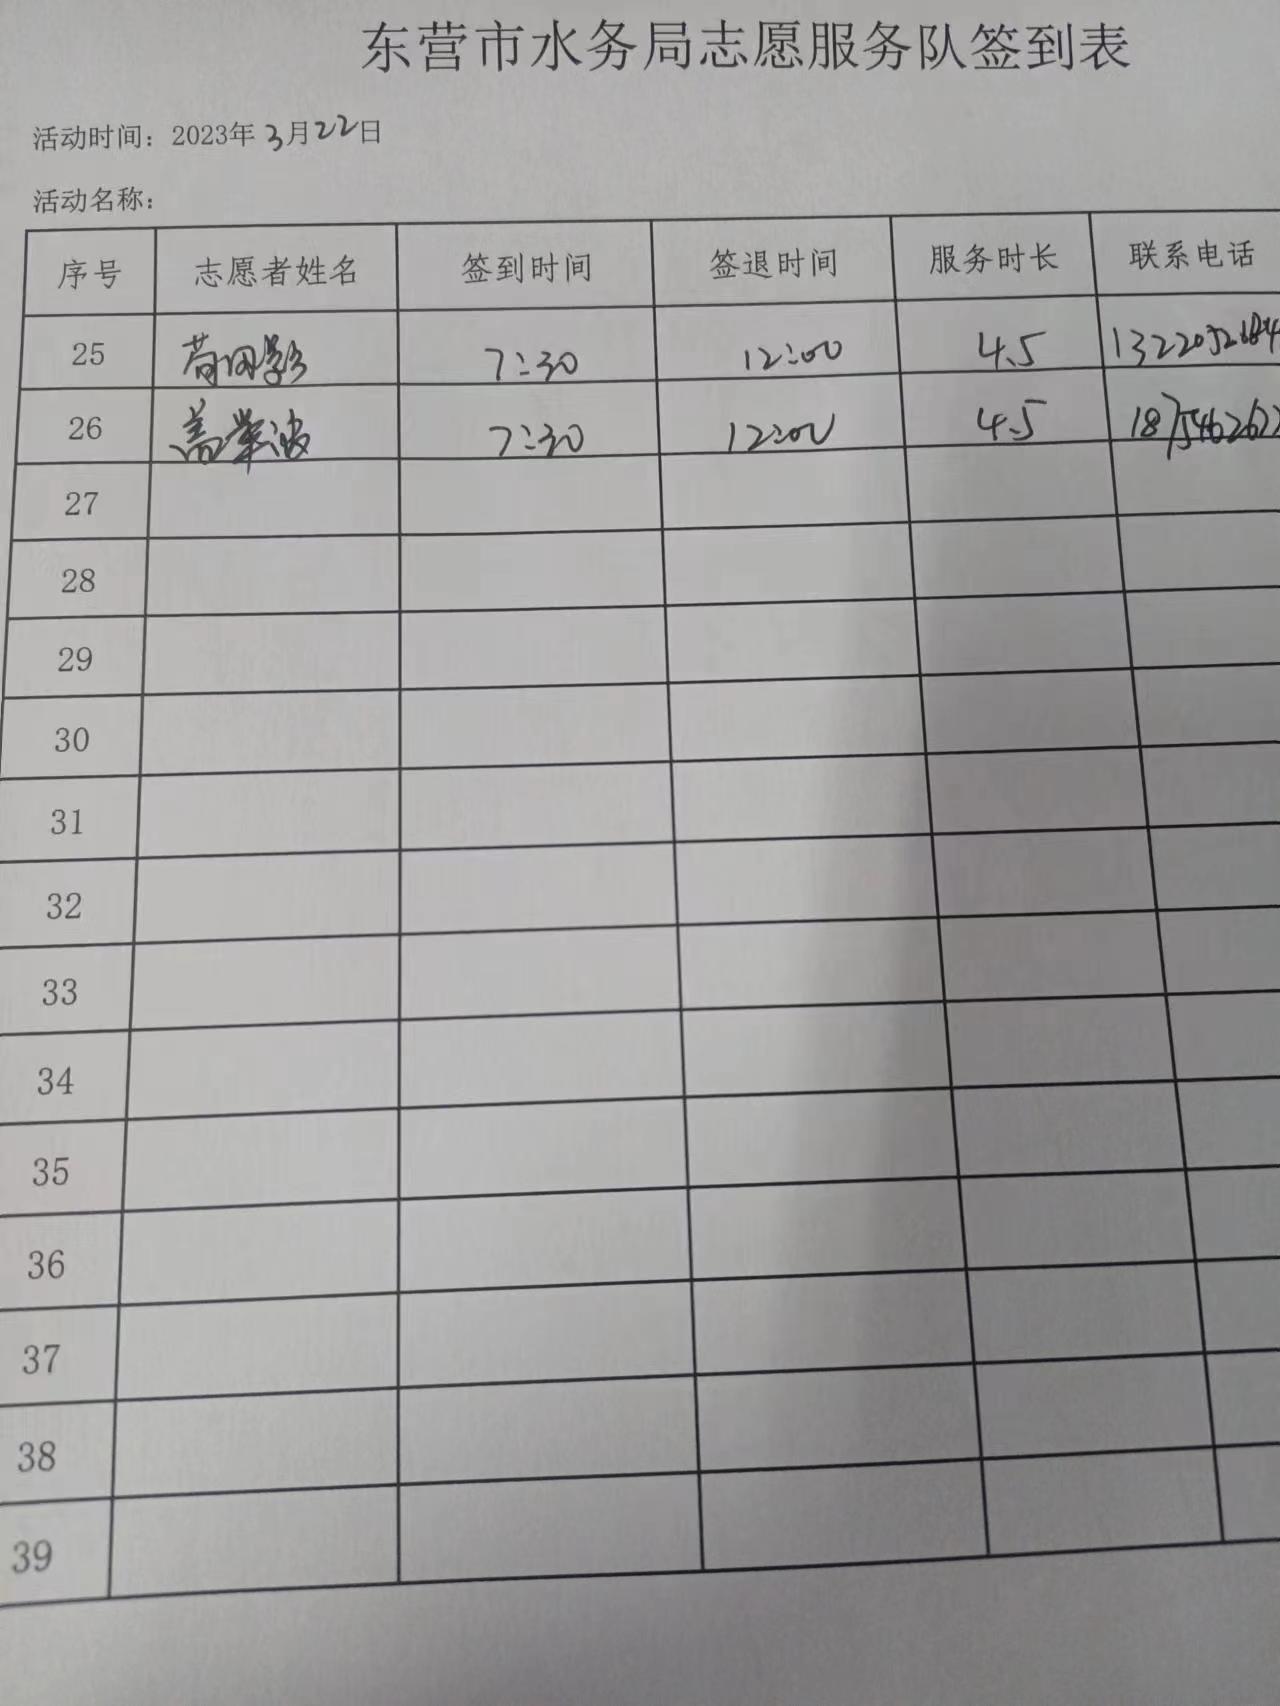 东营市水务局志愿服务队签到表
活动时间：2023年3月22日
活动名称：
序号 志愿者姓名 签到时间 签退时间 服务时长 联系电话
25 7:30 12:00 4.5
26 盖荣波 7:30 12:00 4.5
27
28
29
30
31
32
33
34
35
36
37
38
39